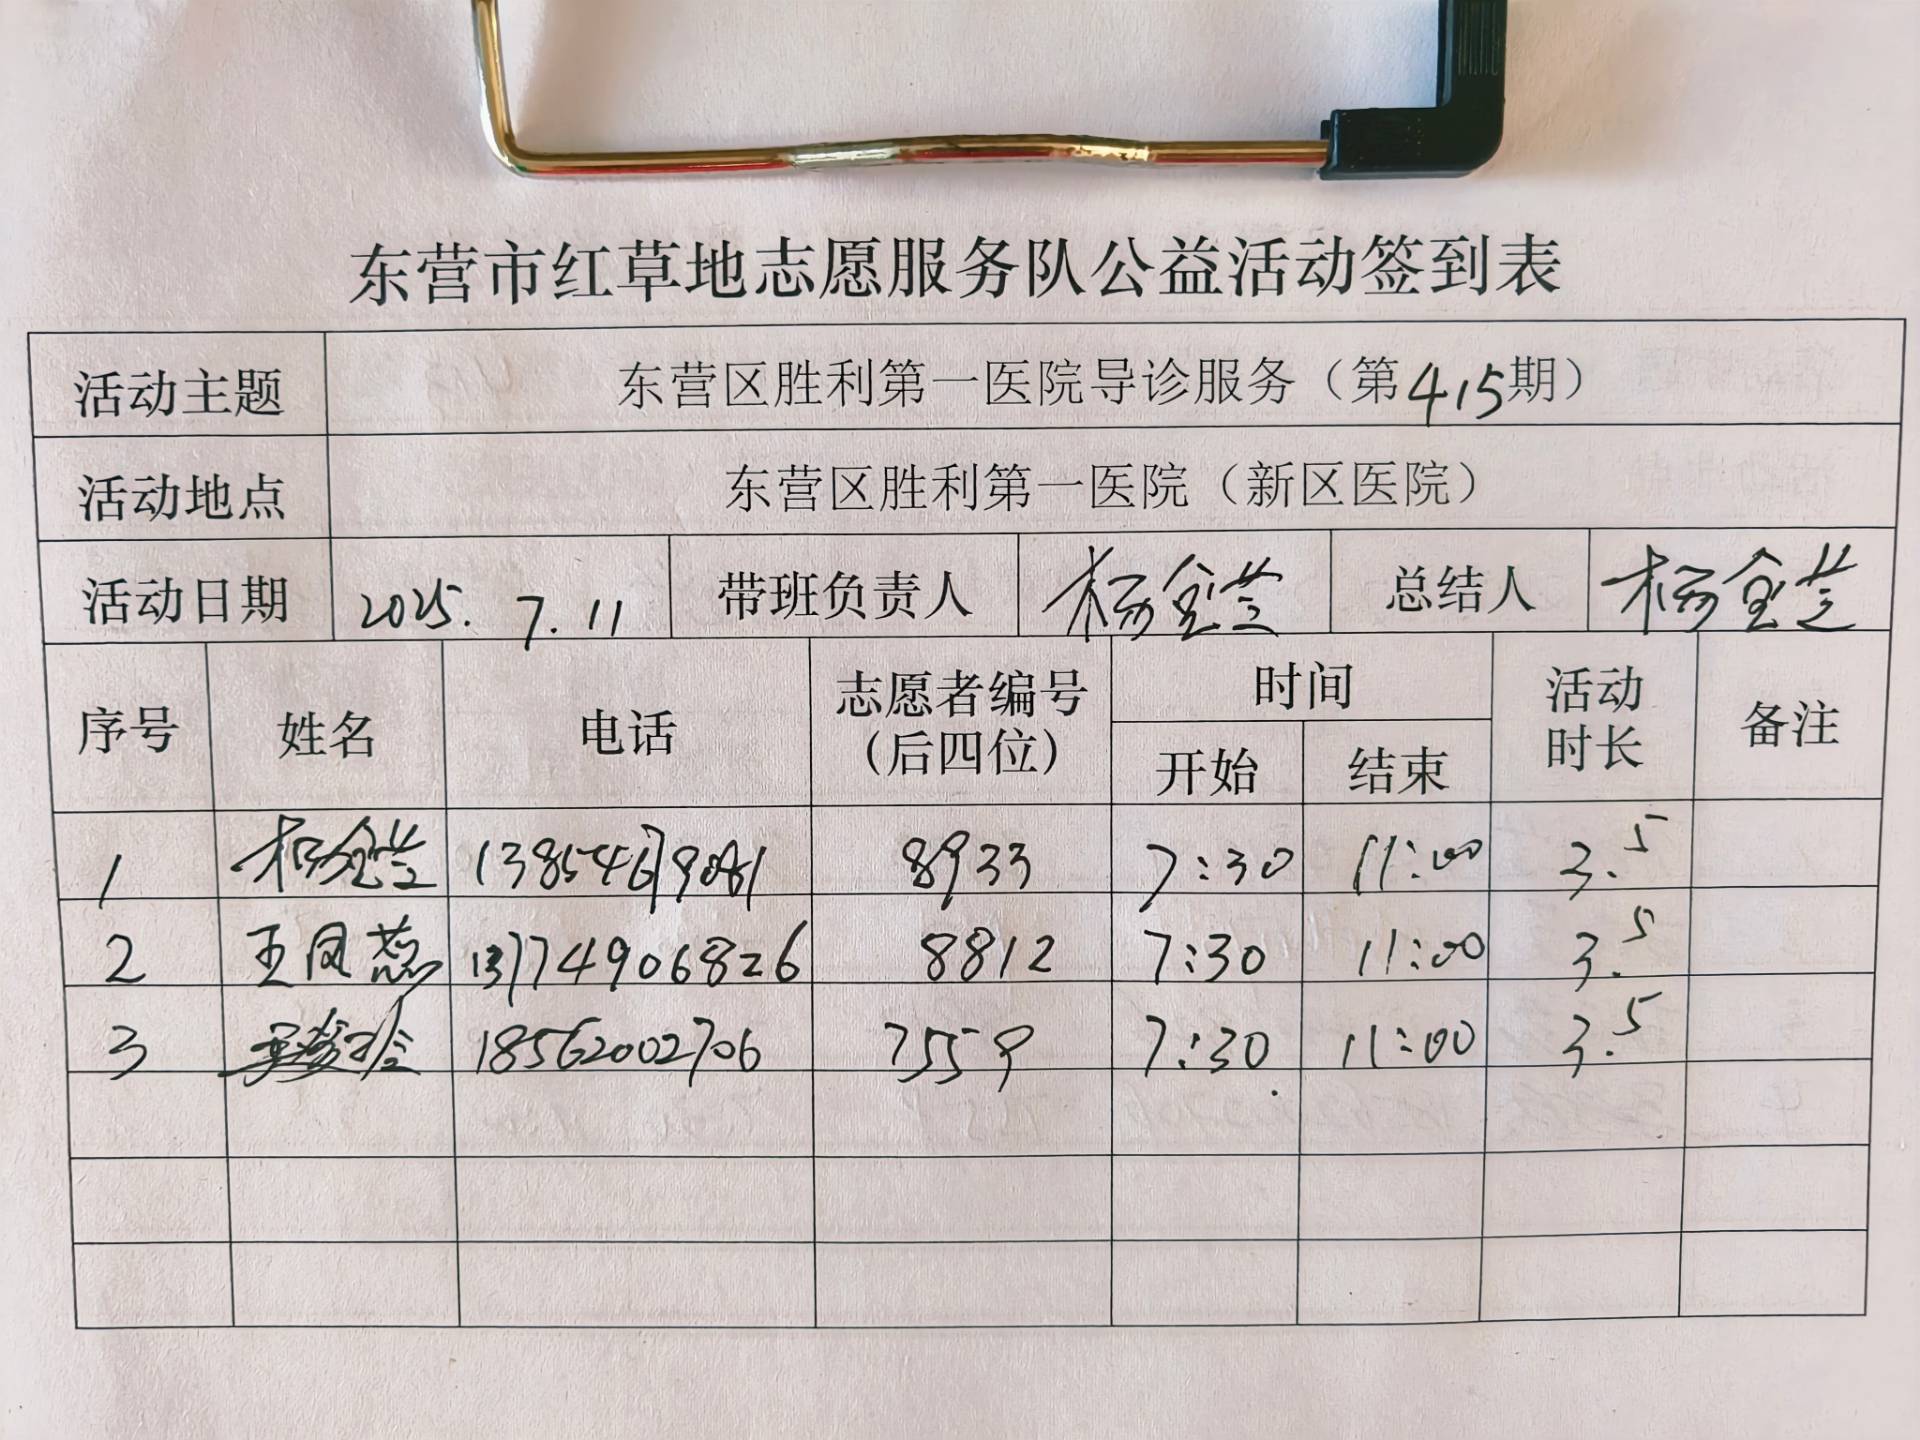 东营市红草地志愿服务队公益活动签到表
活动主题 东营区胜利第一医院导诊服务（第415期）
活动地点 东营区胜利第一医院（新区医院）
活动日期 2025.7.11 带班负责人 杨金芝 总结人 杨金芝
序号 姓名 电话 志愿者编号（后四位） 时间 开始 结束 活动时长 备注
1 杨金芝 8933 7:30 11:00 3.5
2 王凤蕊 8812 7:30 11:00 3.5
3 18562002706 7559 7:30 11:00 3.5